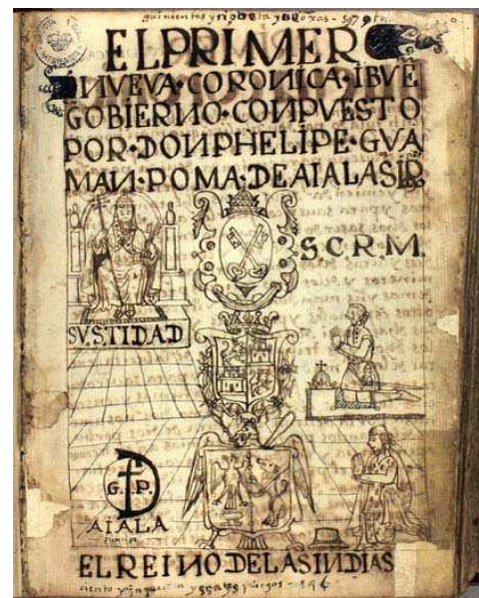 EL PRIMER
NVEVA·CORONICA·I BVĒ
GOBIERNO·CONPVESTO
POR·DON PHELIPE·GVA
MAN·POMA·DE AIALA SĪR
S.C.R.M.
SV.S.TIDAD
G. P.
AIALA
principe
EL REINO DE LAS INDIAS